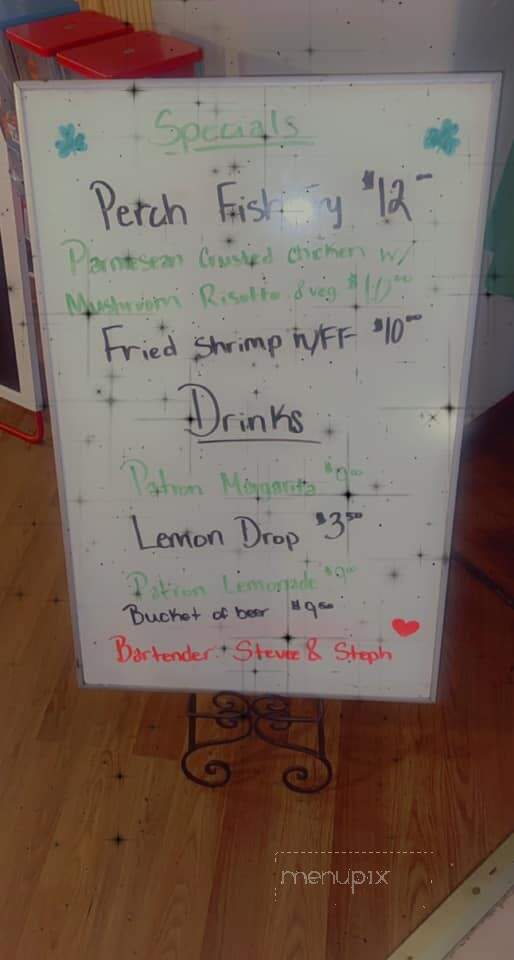 Specials
Perch Fish Fry $12-
Parmesean Crusted chicken w/
Mushroom Risotto & veg
Fried Shrimp w/FF $10⁰⁰
Drinks
Patron Margarita $9⁰⁰
Lemon Drop $3⁵⁰
Patron Lemonade $9⁰⁰
Bucket of beer $9⁵⁰
Bartender: Stevee & Steph
menupix